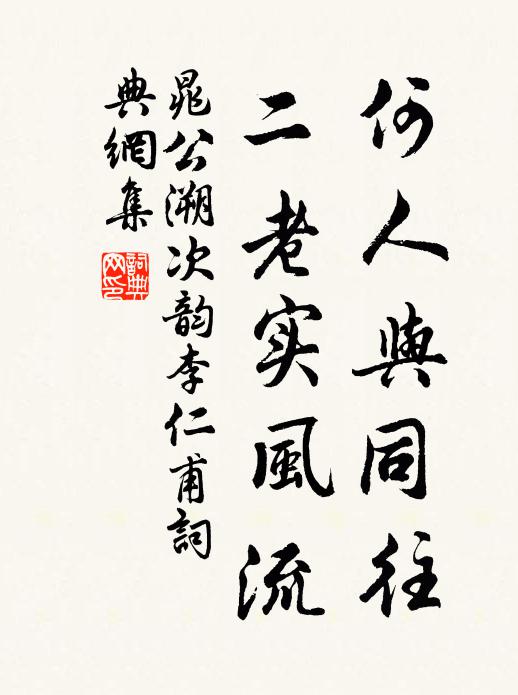 何人與同往
二老实風流
晁公溯次韵李仁甫詞
典網集
詞典网印